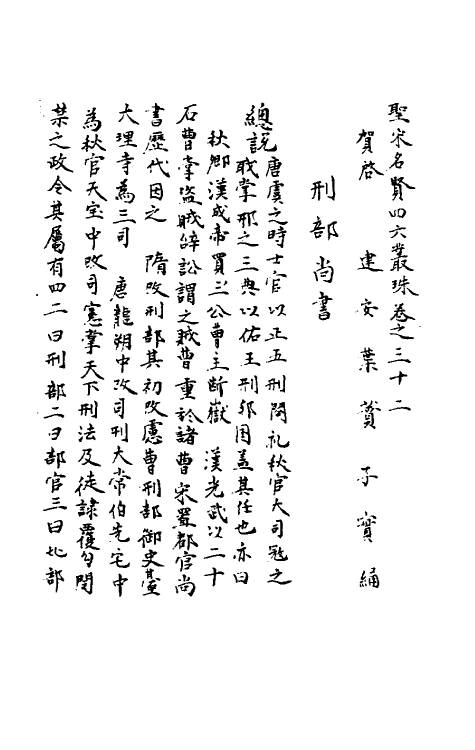 聖宋名賢四六叢珠卷之三十二
賀啓　建安葉蕡子實編
刑部尚書
總說唐虞之時士官以正五刑閱礼秋官大司冦之
職掌邢之三典以佑王刑邦國盖其任也亦曰
秋卿漢成帝買三公曹主断嶽　漢光武以二十
石曹掌盜賊辝訟謂之賊曹重於諸曹宋置都官尚
書歷代因之　隋改刑部其初改慮曹刑部御史臺
大理寺為三司　唐龍朔中改司刑大常伯先宅中
為秋官天宝中改司憲掌天下刑法及徒隷覆勾関
禁之政令其屬有四二曰刑部二曰部官三曰比部